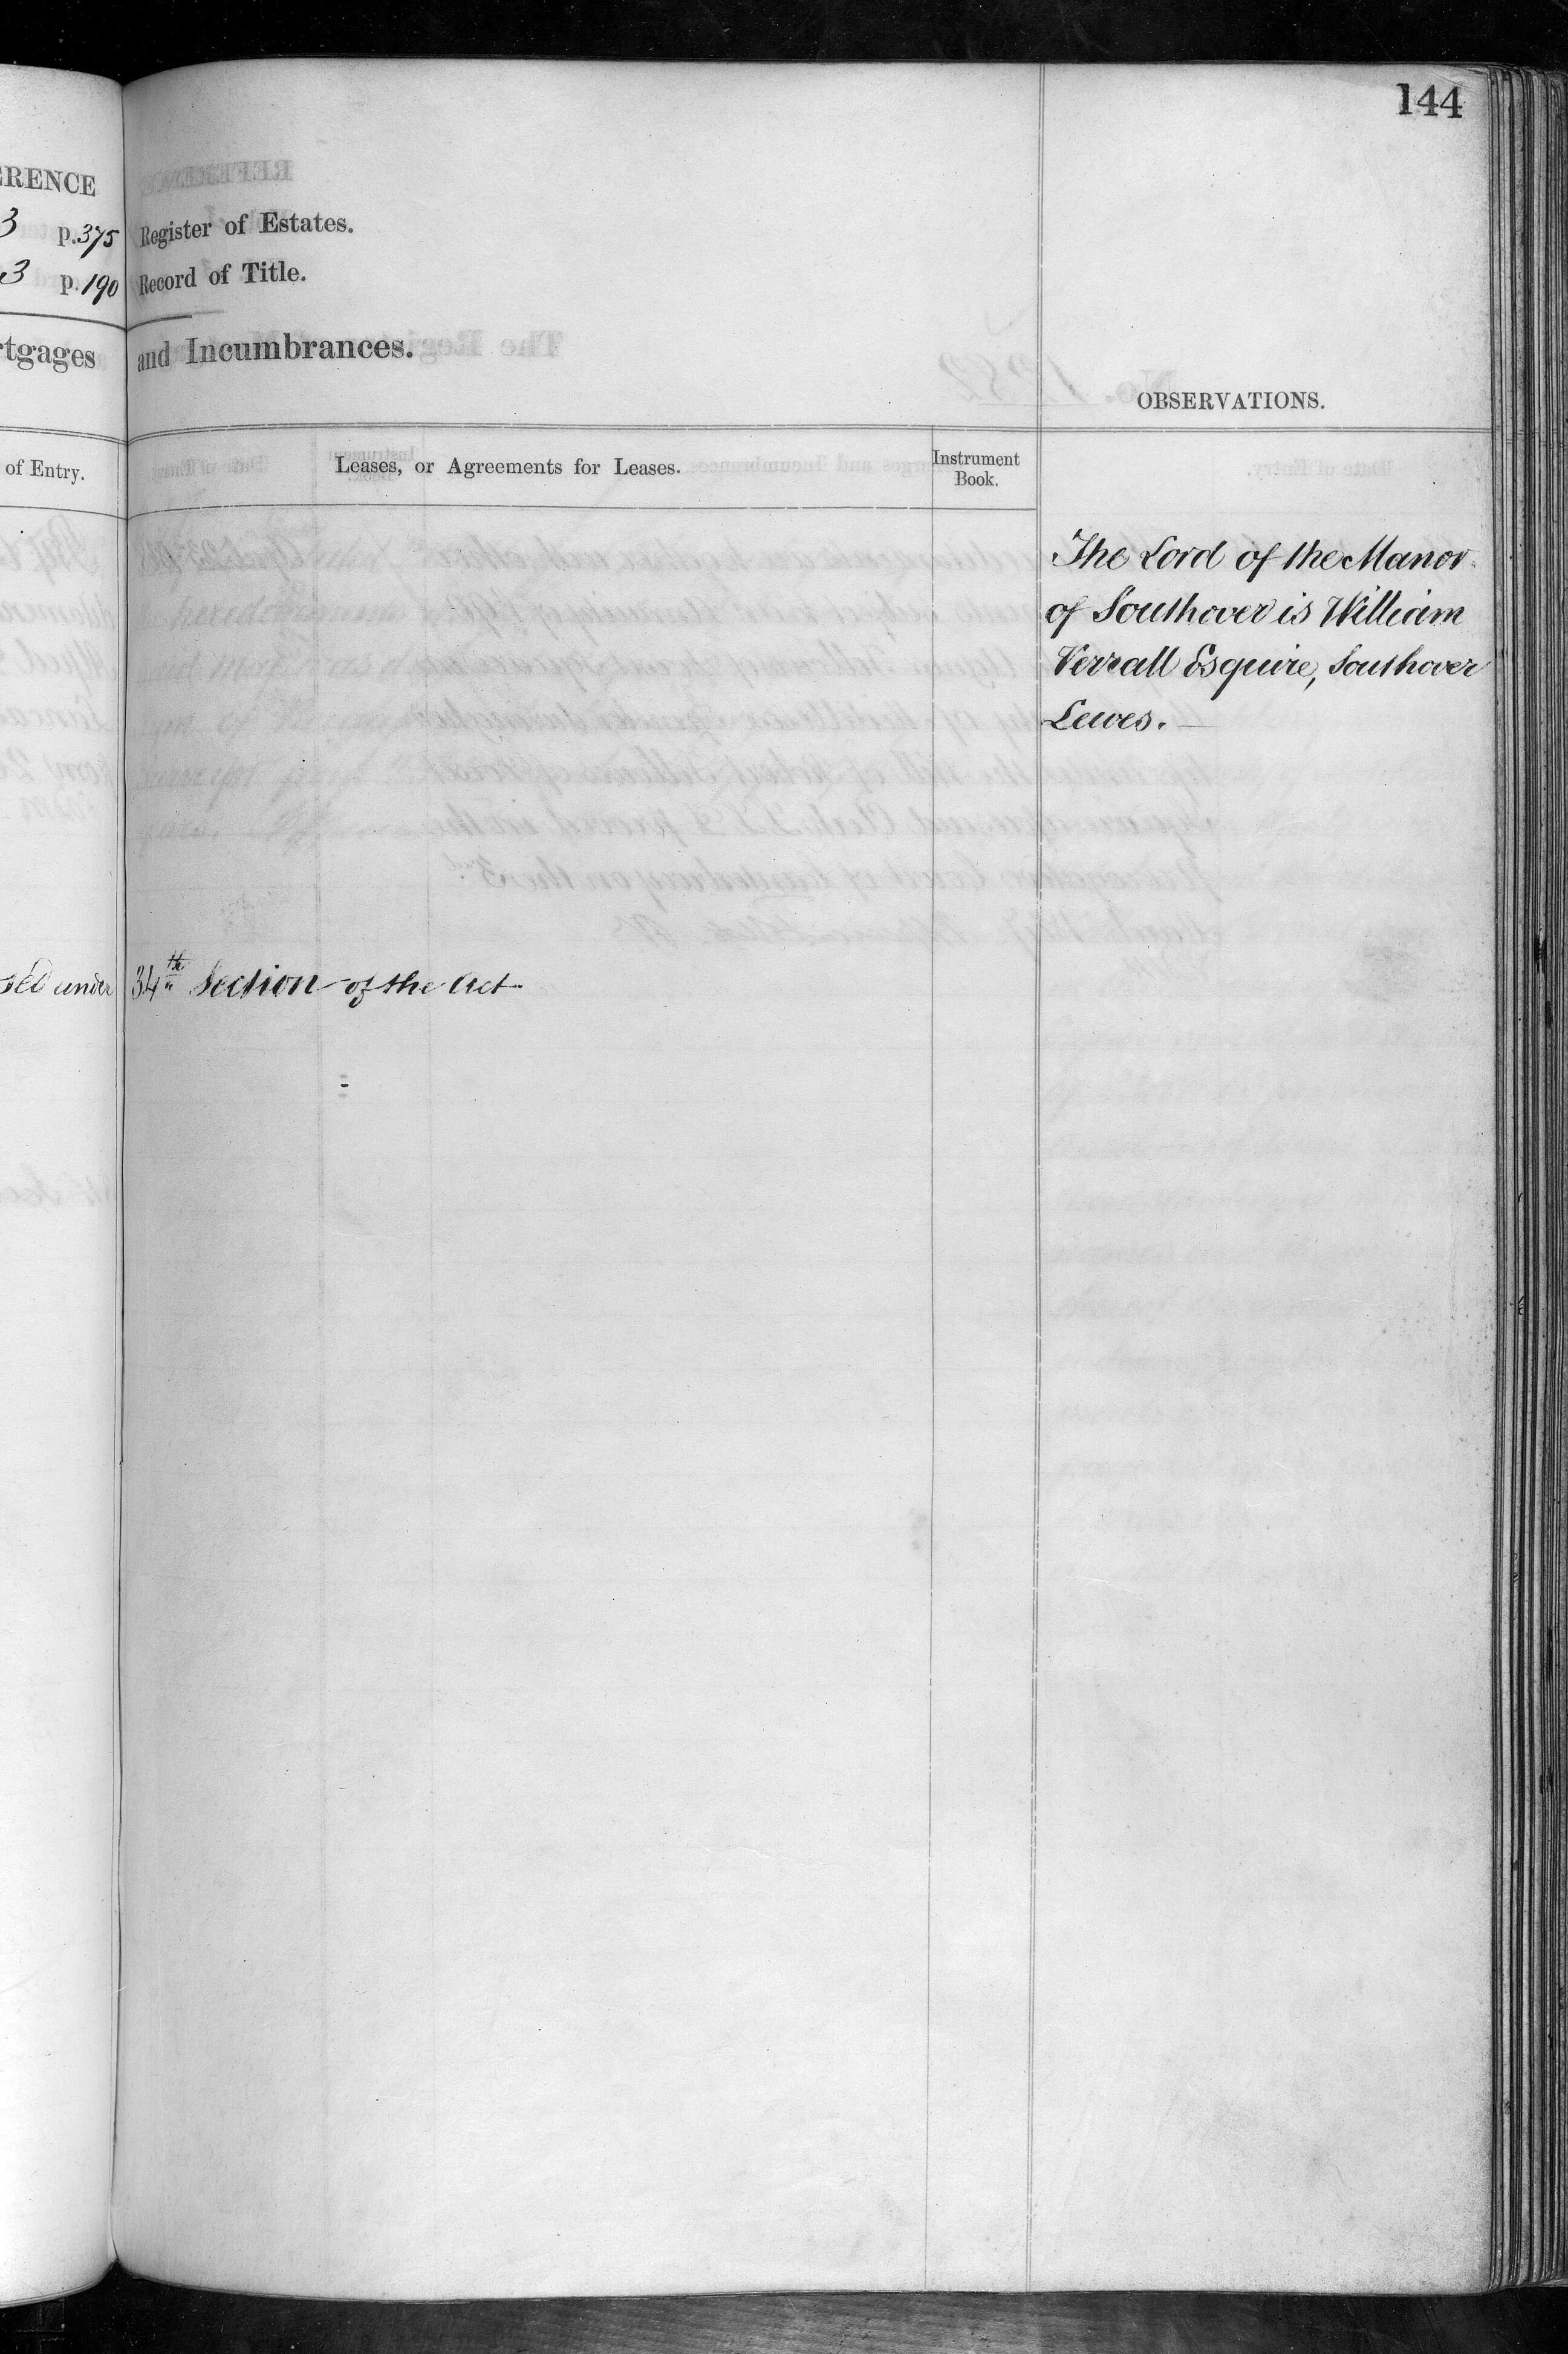 144
p. 375 Register of Estates.
3 p. 190 Record of Title.
and Incumbrances.
OBSERVATIONS.
of Entry.
Leases, or Agreements for Leases.
Instrument
Book.
The Lord of the Manor
of Southover is William
Verrall Esquire, Southover
Lewes.
under 34th Section of the Act